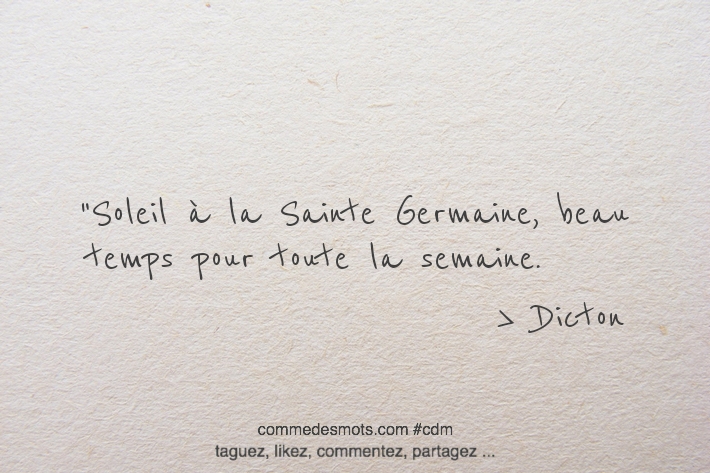 "Soleil à la Sainte Germaine, beau
temps pour toute la semaine.
> Dicton
commedesmots.com #cdm
taguez, likez, commentez, partagez ...